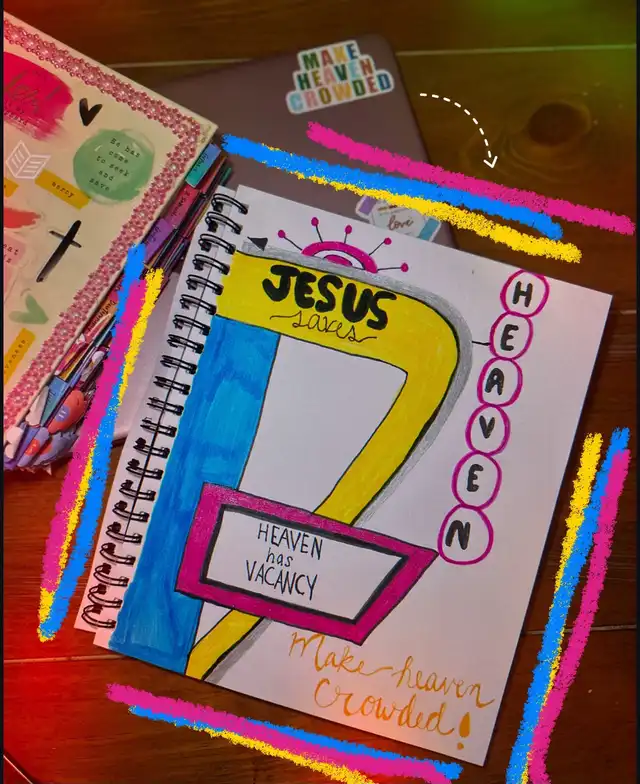 MAKE
HEAVEN
CROWDED
He has
come
to seek
and
save
mercy
love
JESUS
saves
HEAVEN
HEAVEN
has
VACANCY
Make heaven
Crowded!